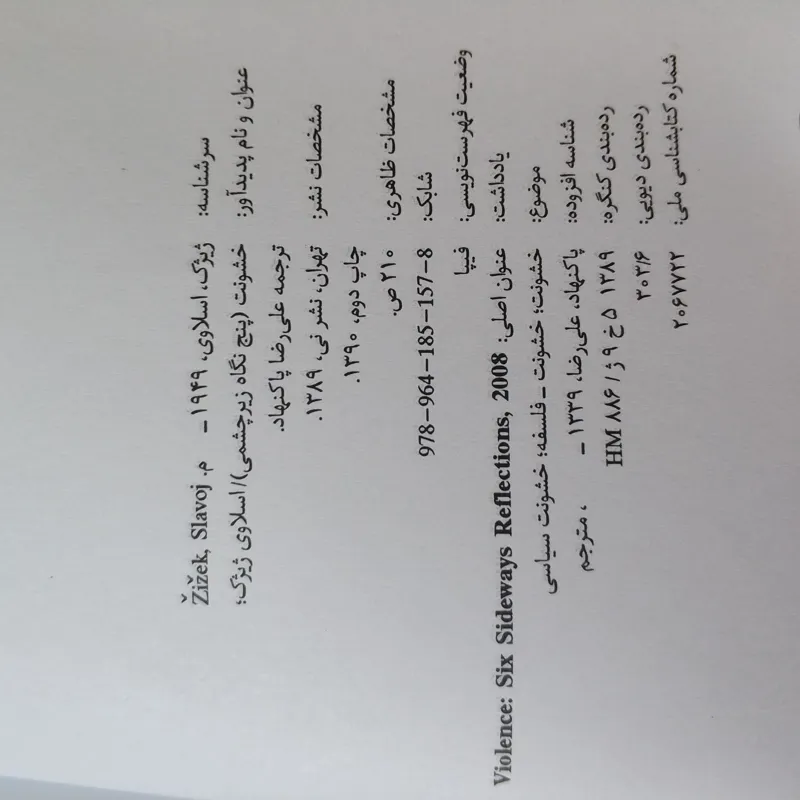 سرشناسه: ژیژک، اسلاوی، ۱۹۴۹ – م. Žižek, Slavoj
عنوان و نام پدیدآور: خشونت (پنج نگاه زیرچشمی)/اسلاوی ژیژک؛
ترجمه علی‌رضا پاکنهاد.
مشخصات نشر: تهران، نشر نی، ۱۳۸۹.
چاپ دوم، ۱۳۹۰.
مشخصات ظاهری: ۲۱۰ ص.
شابک: 978-964-185-157-8
وضعیت فهرست‌نویسی: فیپا
یادداشت: عنوان اصلی: Violence: Six Sideways Reflections, 2008
موضوع: خشونت؛ خشونت – فلسفه؛ خشونت سیاسی
شناسه افزوده: پاکنهاد، علی‌رضا، ۱۳۳۹ – ، مترجم
رده‌بندی کنگره: HM ۸۸۶/ژ۹خ۵ ۱۳۸۹
رده‌بندی دیویی: ۳۰۳/۶
شماره کتابشناسی ملی: ۲۰۶۷۷۲۲